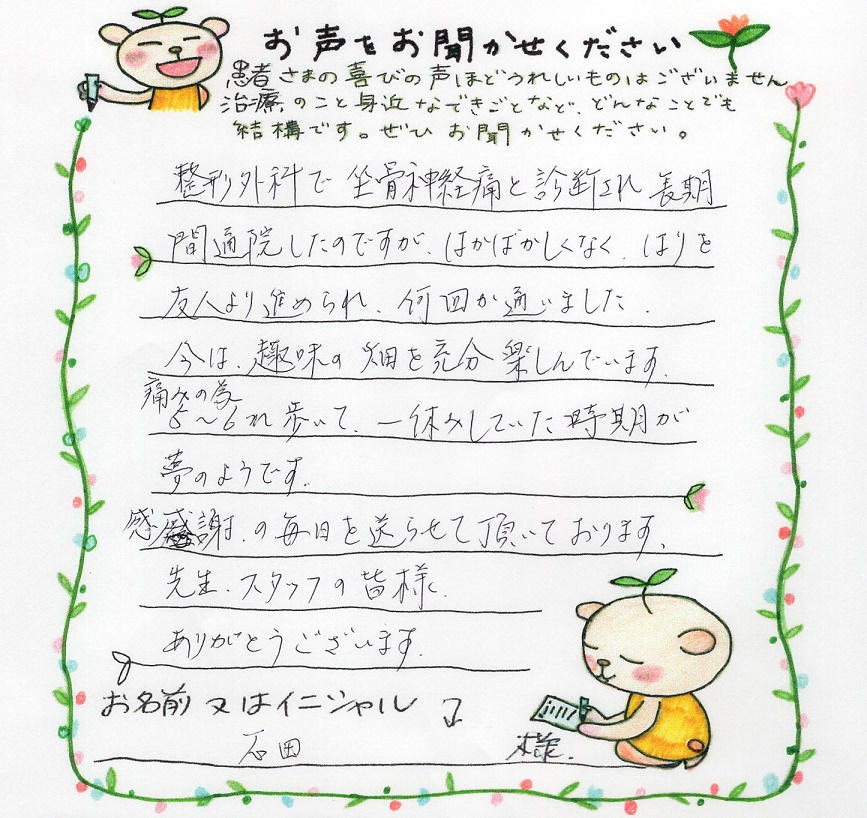 お声をお聞かせください
患者さまの喜びの声ほどうれしいものはございません
治療のこと身近なできごとなど、どんなことでも
結構です。ぜひ お聞かせください。
整形外科で 坐骨神経痛と診断され 長期
間通院したのですが、はかばかしくなく、はりを
友人より進められ、何回か通いました.
今は、趣味の 畑を充分 楽しんでいます.
痛みの為
5〜6m 歩いて、一休みしていた時期が
夢のようです.
感謝、の毎日を送らせて頂いております、
先生、スタッフの皆様、
ありがとうございます.
お名前 又はイニシャル
石田 様.